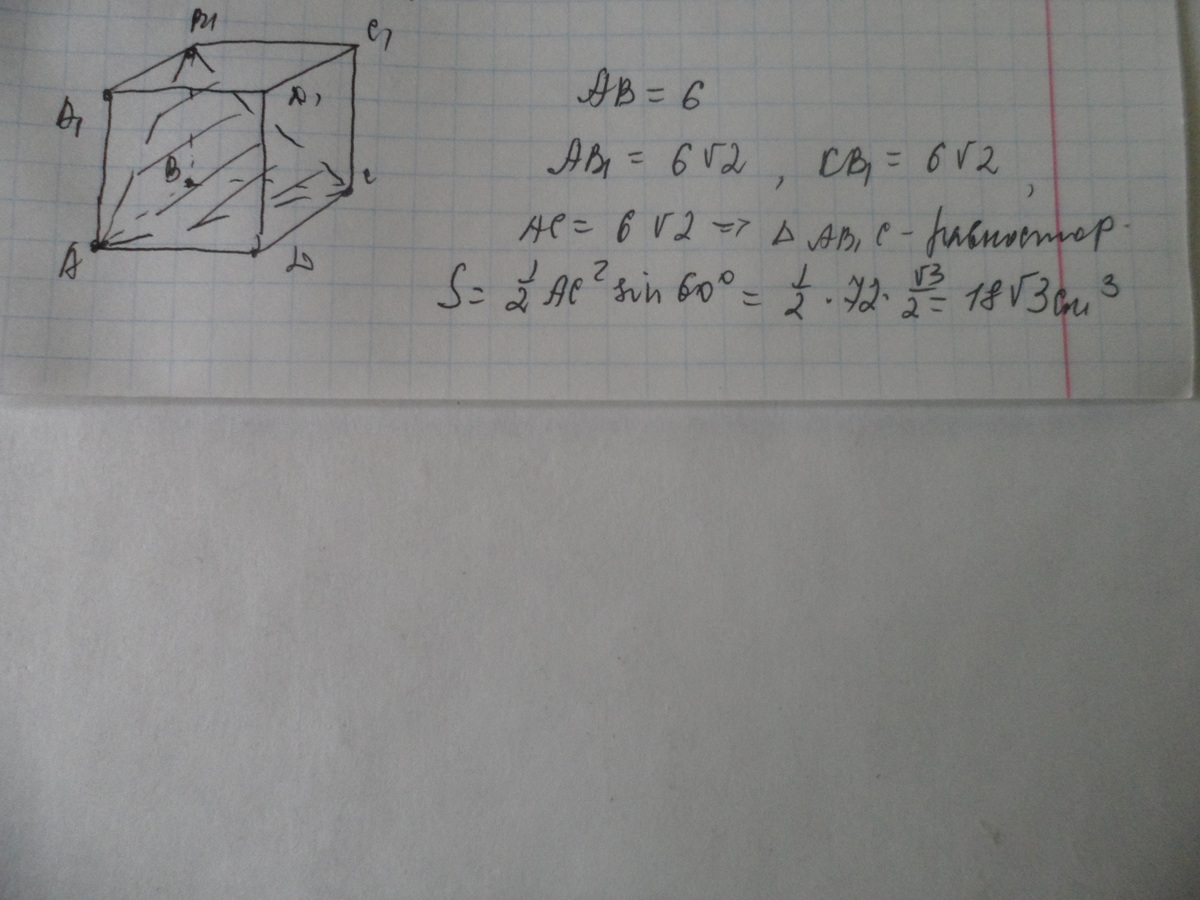 B₁ C₁
A₁ D₁
B C
A D
AB = 6
AB₁ = 6√2 , CB₁ = 6√2 ,
AC = 6√2 => △ AB₁C - равностор.
S = 1/2 AC² sin 60° = 1/2 · 72 · √3/2 = 18√3 см³